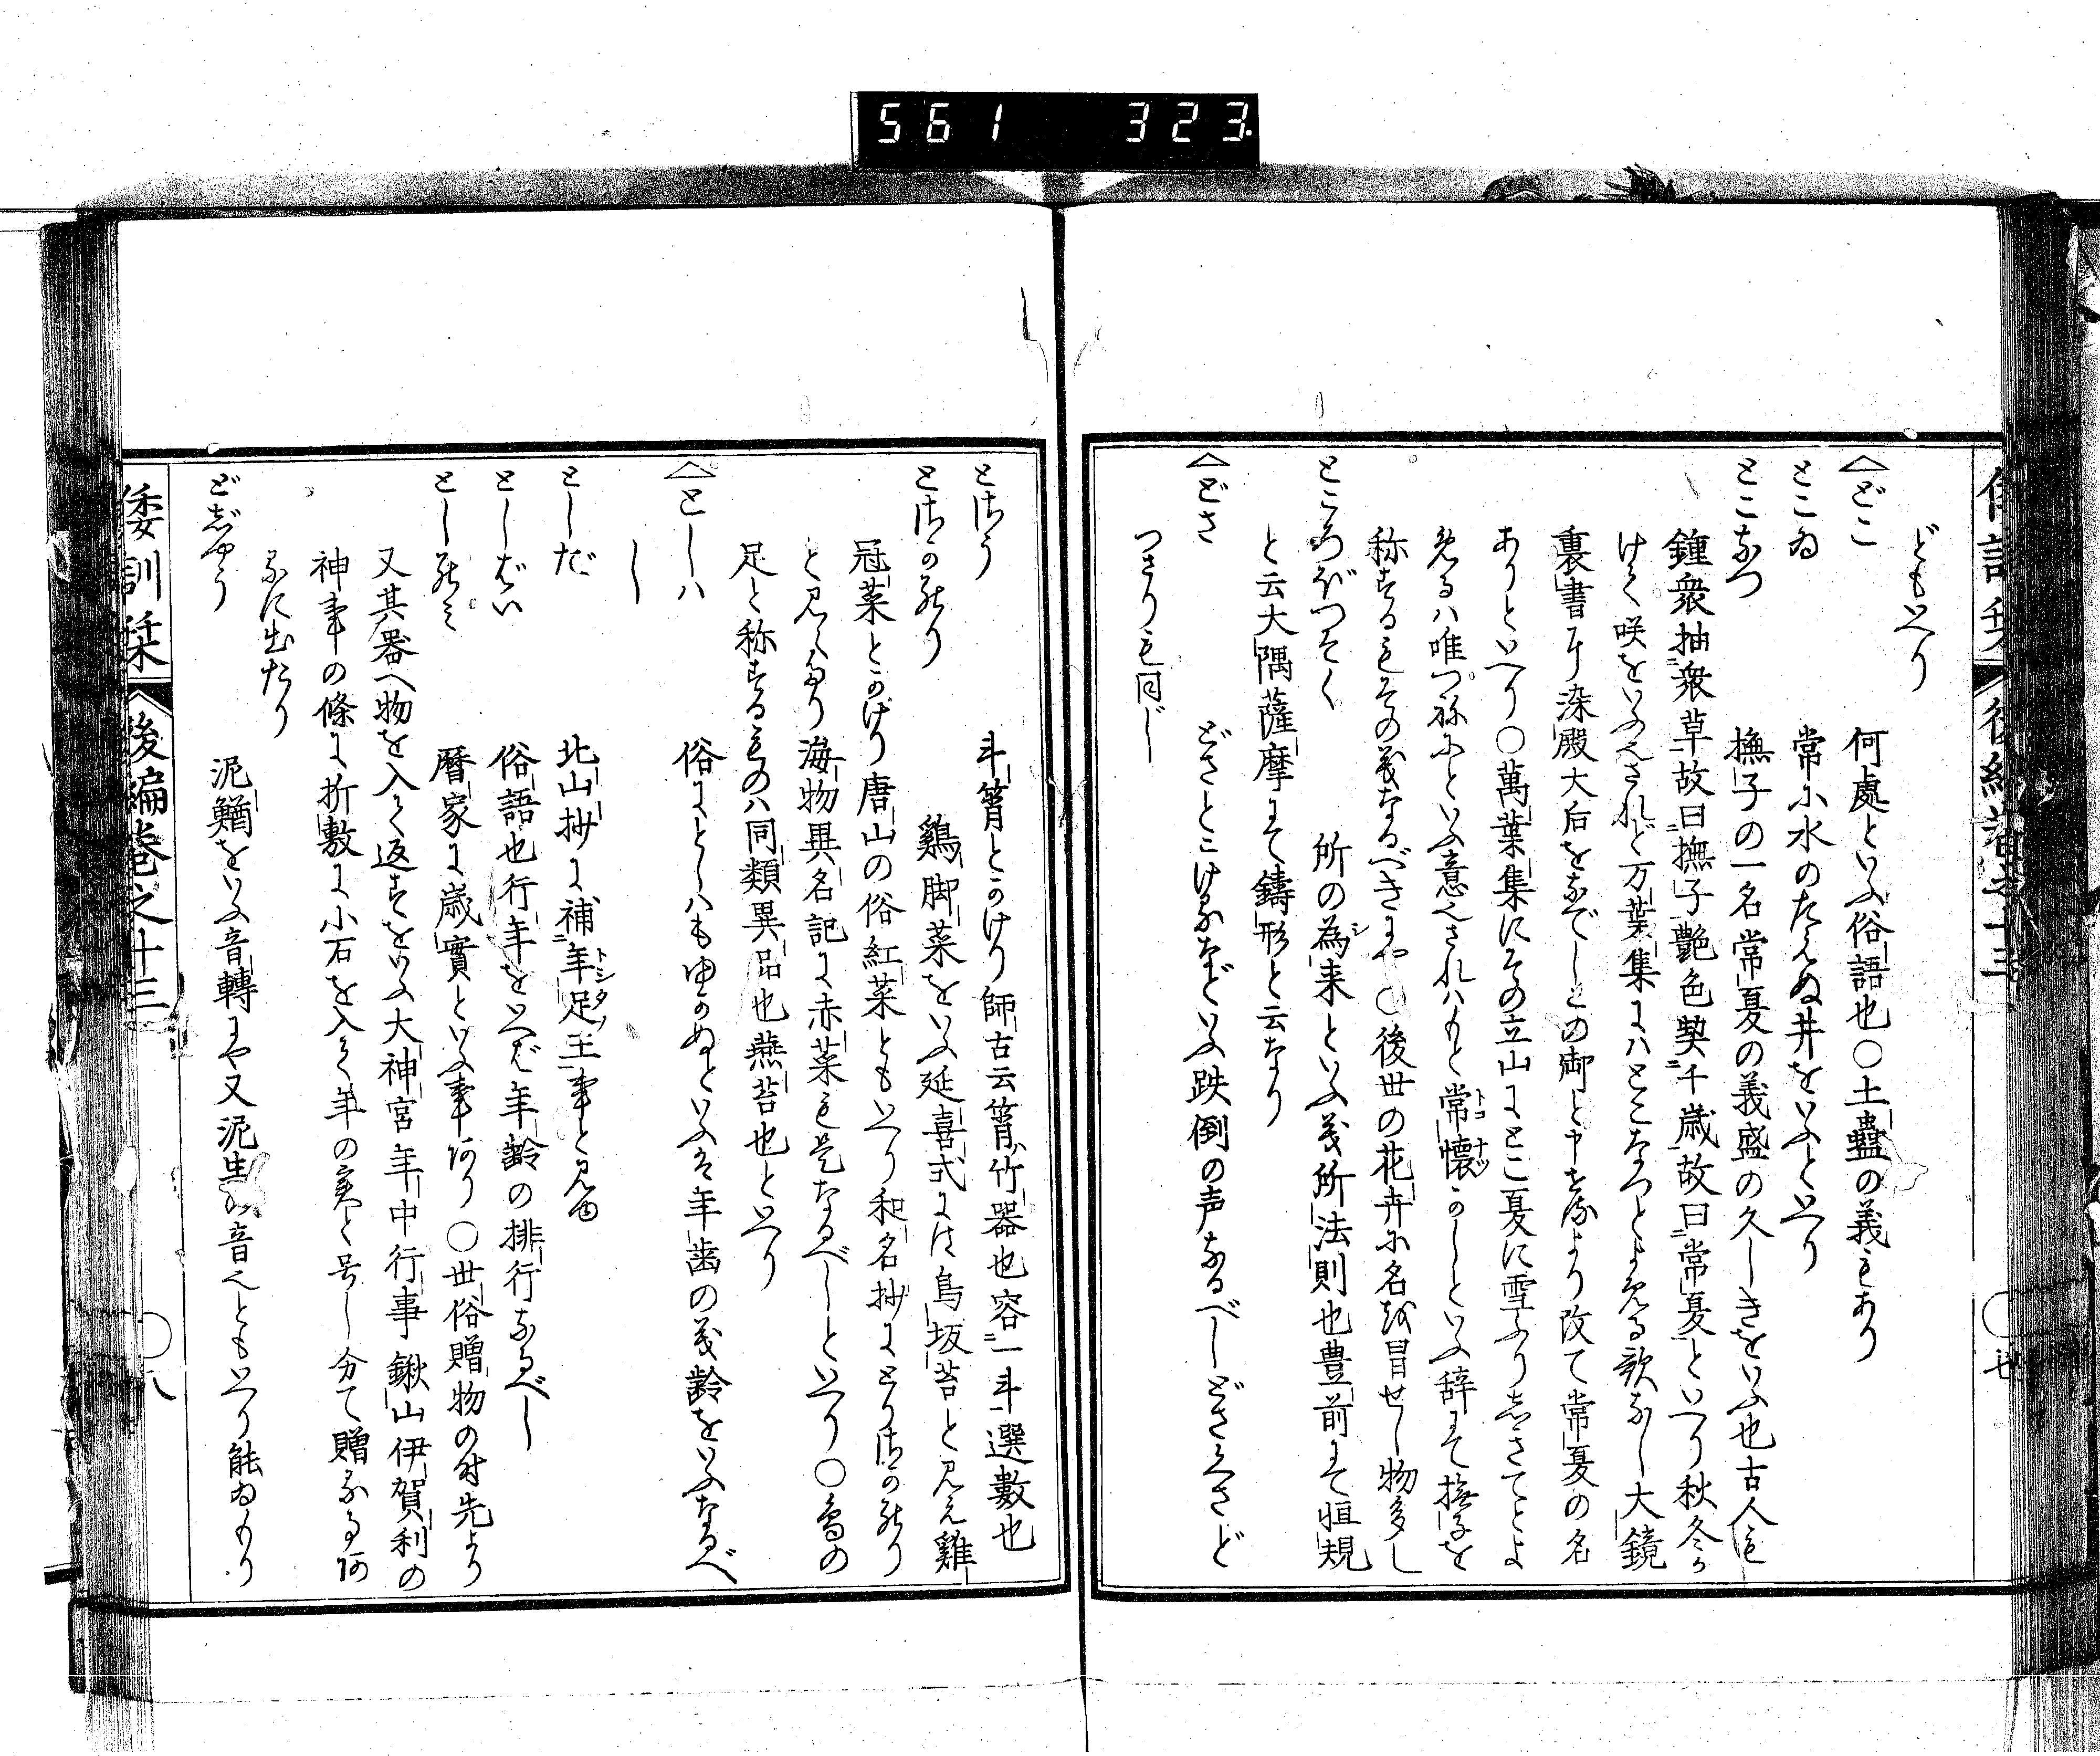 561 323
ども.いへり
△どこ 何處といふ俗語也○土蠱の義もあり
とこゐ 常に水のたえぬ井をいふといへり
とこなつ 撫子の一名常夏の義盛の久しきをいふ也古人も
鐘衆抽衆草故曰撫子艶色契千歳故曰常夏といへり秋冬り
けて咲をいふへされど万葉集にハとこなつとよめる歌なし大鏡
裏書に染殿大后をなでしこの御と申せしより改て常夏の名
ありといへり○萬葉集にその立山にとこ夏に雪ふりしきてとよ
めるハ唯つねにといふ意へされハもと常懐かしといふ辞にて撫子を
称するもその義なるべきにや○後世の花卉に名を冒せし物多し
ところがつそく 所の為来といふ義所法則也豊前にて恒規
と云大隅薩摩にて鑄形と云なり
△どさ どさとこけるなどいふ跌倒の声なるべしどさくさど
つさりも同じ
とさう 斗筲とかけり師古云筲竹器也容一斗選數也
とさかのり 鷄脚菜をいふ延喜式には鳥坂苔と見え雞
冠菜とかけり唐山の俗紅菜ともいへり和名抄にとりさかのり
と見えたり海物異名記に赤菜も是なるべしといへり○鳥の
足と称するもの八同類異品也燕苔也といへり
△とし八 俗にとし八もゆかぬといふは年歯の義齡をいふなるべ
し
としだ 北山抄に補年足王事と見ゆ
としばい 俗語也行年をいへば年齢の排行なるべし
としのミ 暦家に歳實といふ事あり○世俗贈物の時先より
又其器へ物を入て返すをいふ大神宮年中行事鍬山伊賀利の
神事の條に折敷に小石を入て年の実と号し分て贈るる事あ
るに出たり
どぢやう 泥鰌をいふ音轉にや又泥生の音へともいへり能ゐもり
倭訓栞 後編巻之十三 ○八